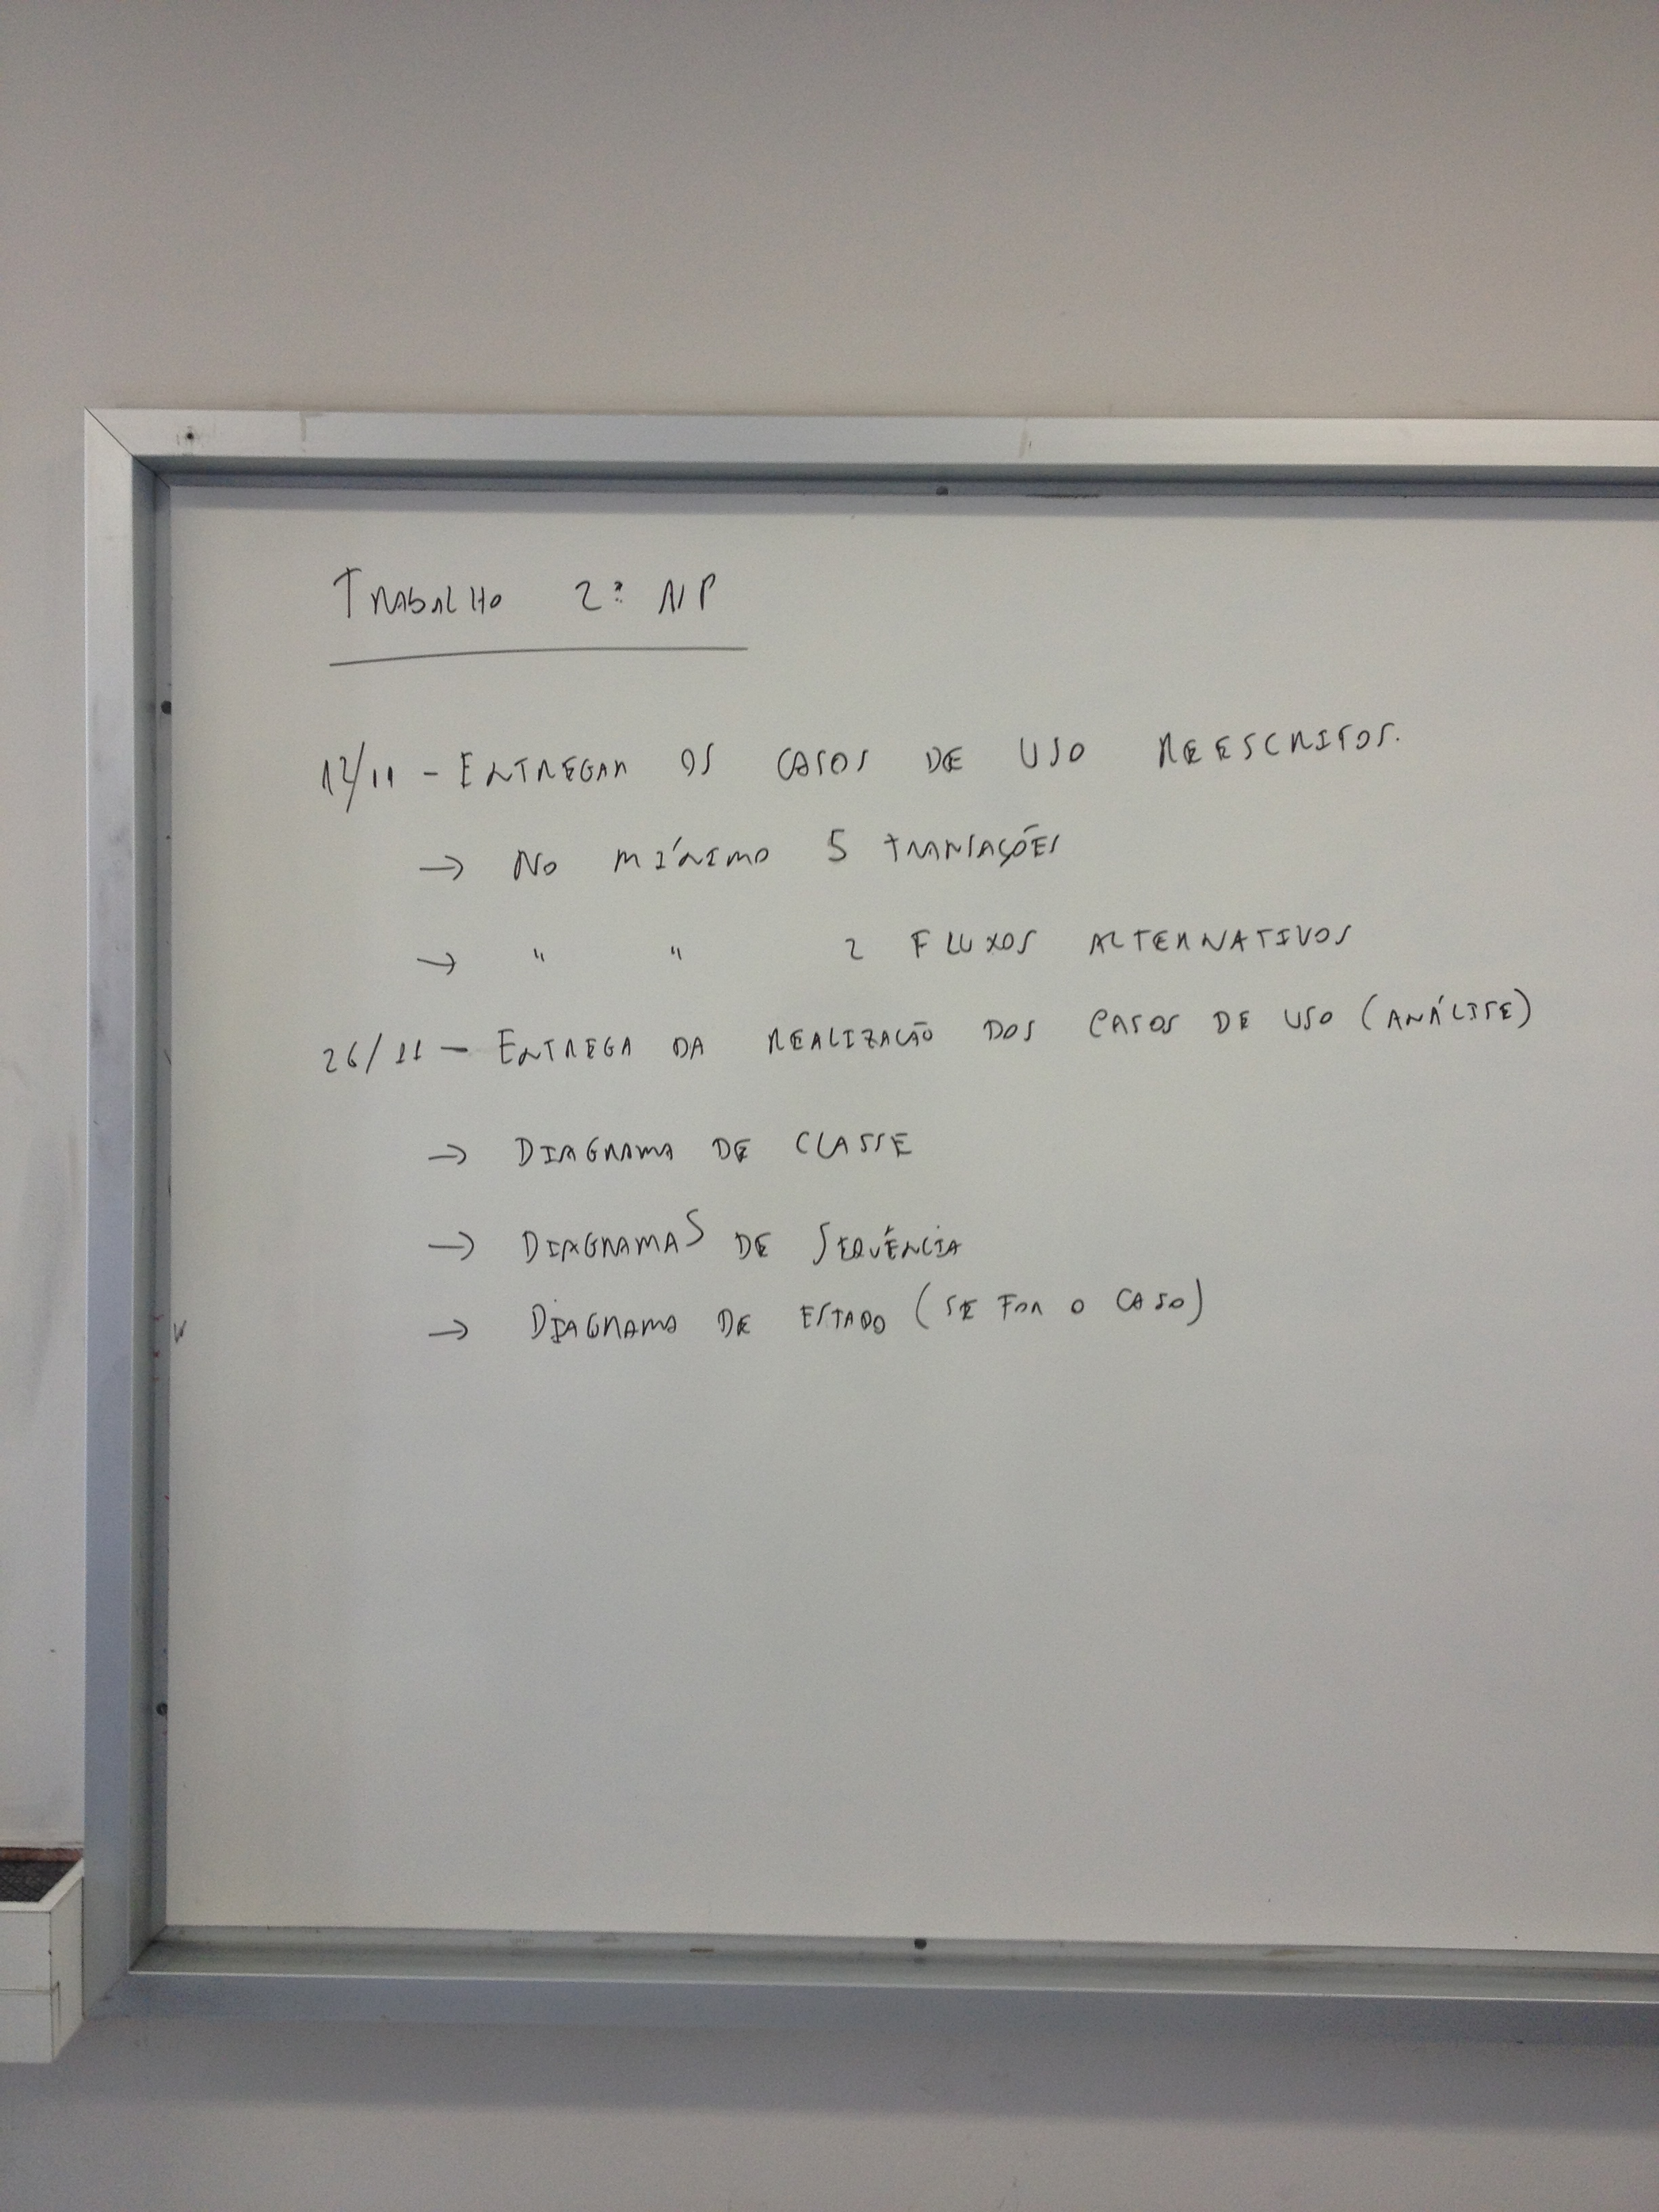 TRABALHO 2ª NP
12/11 - ENTREGAR OS CASOS DE USO REESCRITOS.
→ NO MÍNIMO 5 TRANSAÇÕES
→ " " 2 FLUXOS ALTERNATIVOS
26/11 - ENTREGA DA REALIZAÇÃO DOS CASOS DE USO (ANÁLISE)
→ DIAGRAMA DE CLASSE
→ DIAGRAMAS DE SEQUÊNCIA
→ DIAGRAMA DE ESTADO (SE FOR O CASO)